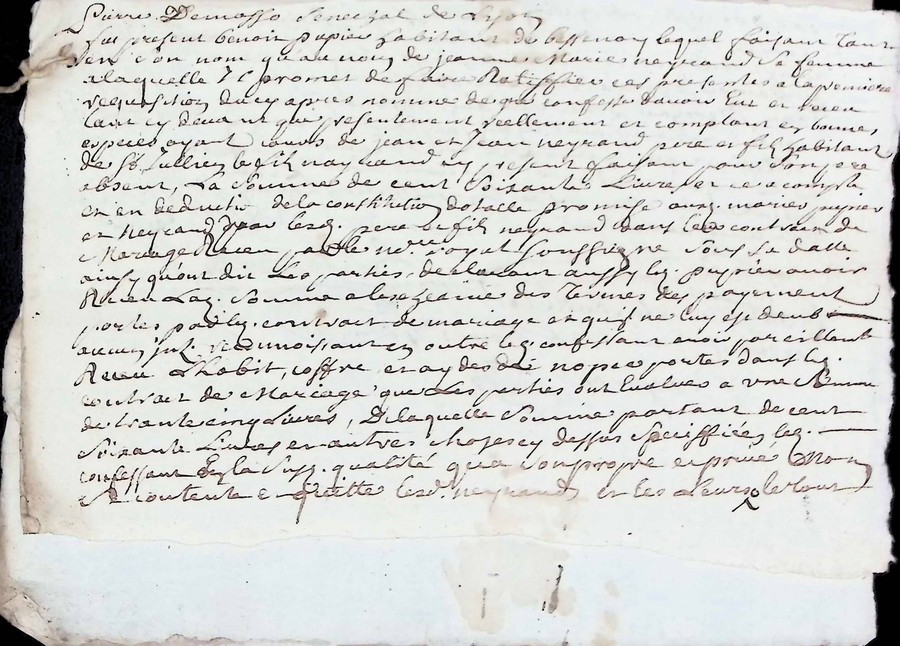 Pierre Demasso Senechal de Lyon
fut présent benoit pupier habitant de bessenay lequel faisant tant
en son nom qu'au nom de jeanne Marie neyrand Sa femme
a laquelle Il promet de faire Ratiffier ces presentes a la premiere
requisition du cy apres nomme de gré confesse davoir Eut et receu
tant cy devant que presentement reellement et comptant en bonnes
especes ayant cours de jean et Jean neyrand pere et fils habitant
de St. Jullien le fils neyrand cy present faisant pour Son pere
absent, La Somme de cent Soixante Livres et ce a compte
et en deduction de la constitution dotalle promise auxd. mariés pupier
et Neyrand par lesd. pere et fils neyrand dans led. contract de
Mariage Receu par le nore. Royal Soussigné Sous Sa datte
ainsy qu'ont dit Les parties, declarant aussy led. pupier avoir
Receu Lad. Somme a les des termes des payement
portés par led. contract de mariage et quil ne luy est deub
aucun reconnoissant en outre led. confessant avoir pareillement
Receu L'habit, coffre et aydes de nopce portés dans led.
contract de Mariage que Les parties ont Evalués a une Somme
de trante cinq Livres, De laquelle Somme partant de cent
Soixante Livres et autres choses cy dessus Speciffiées, led.
confessant En la Susd. qualité qu'a Son propre et privé Nom
Se contente et Quitte lesd. neyrand et les Leurs le tout